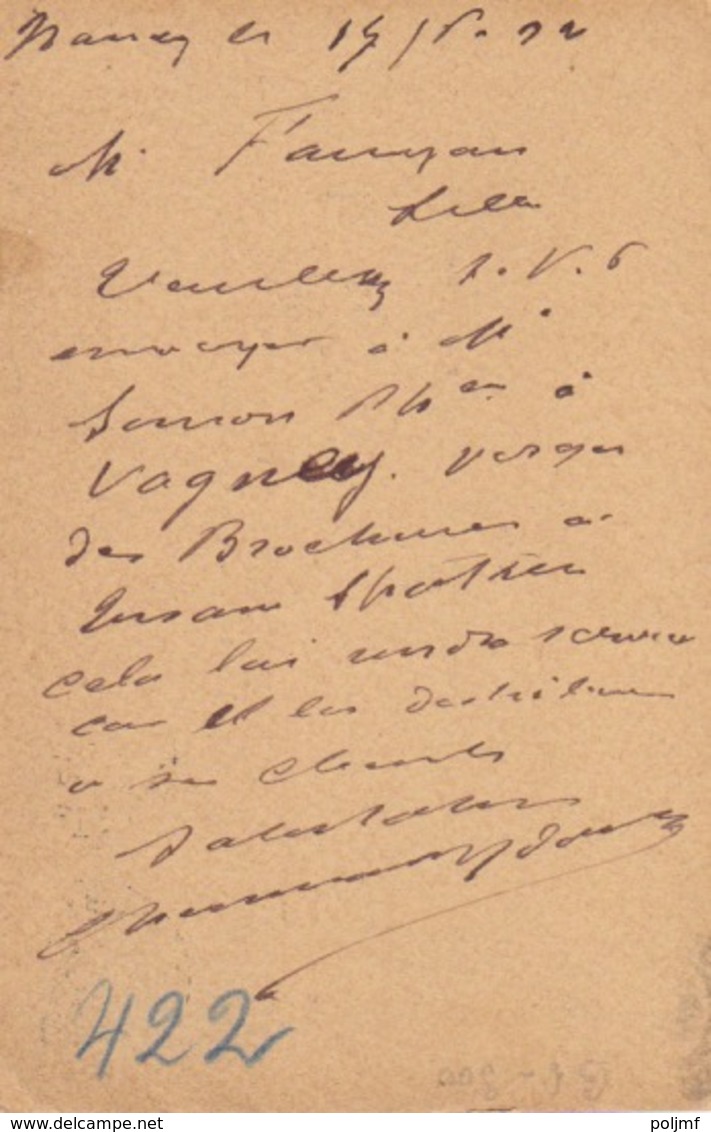 Nancy le 15/5. 92
M. Fanyau
Lille
Veuillez s. v. p
envoyer à Mr
Simon Phen à
Vagney. Vosges
des Brochures
cela lui rendra service
car il les distribuera
à ses clients
Salutations
422
poljmf poljmf